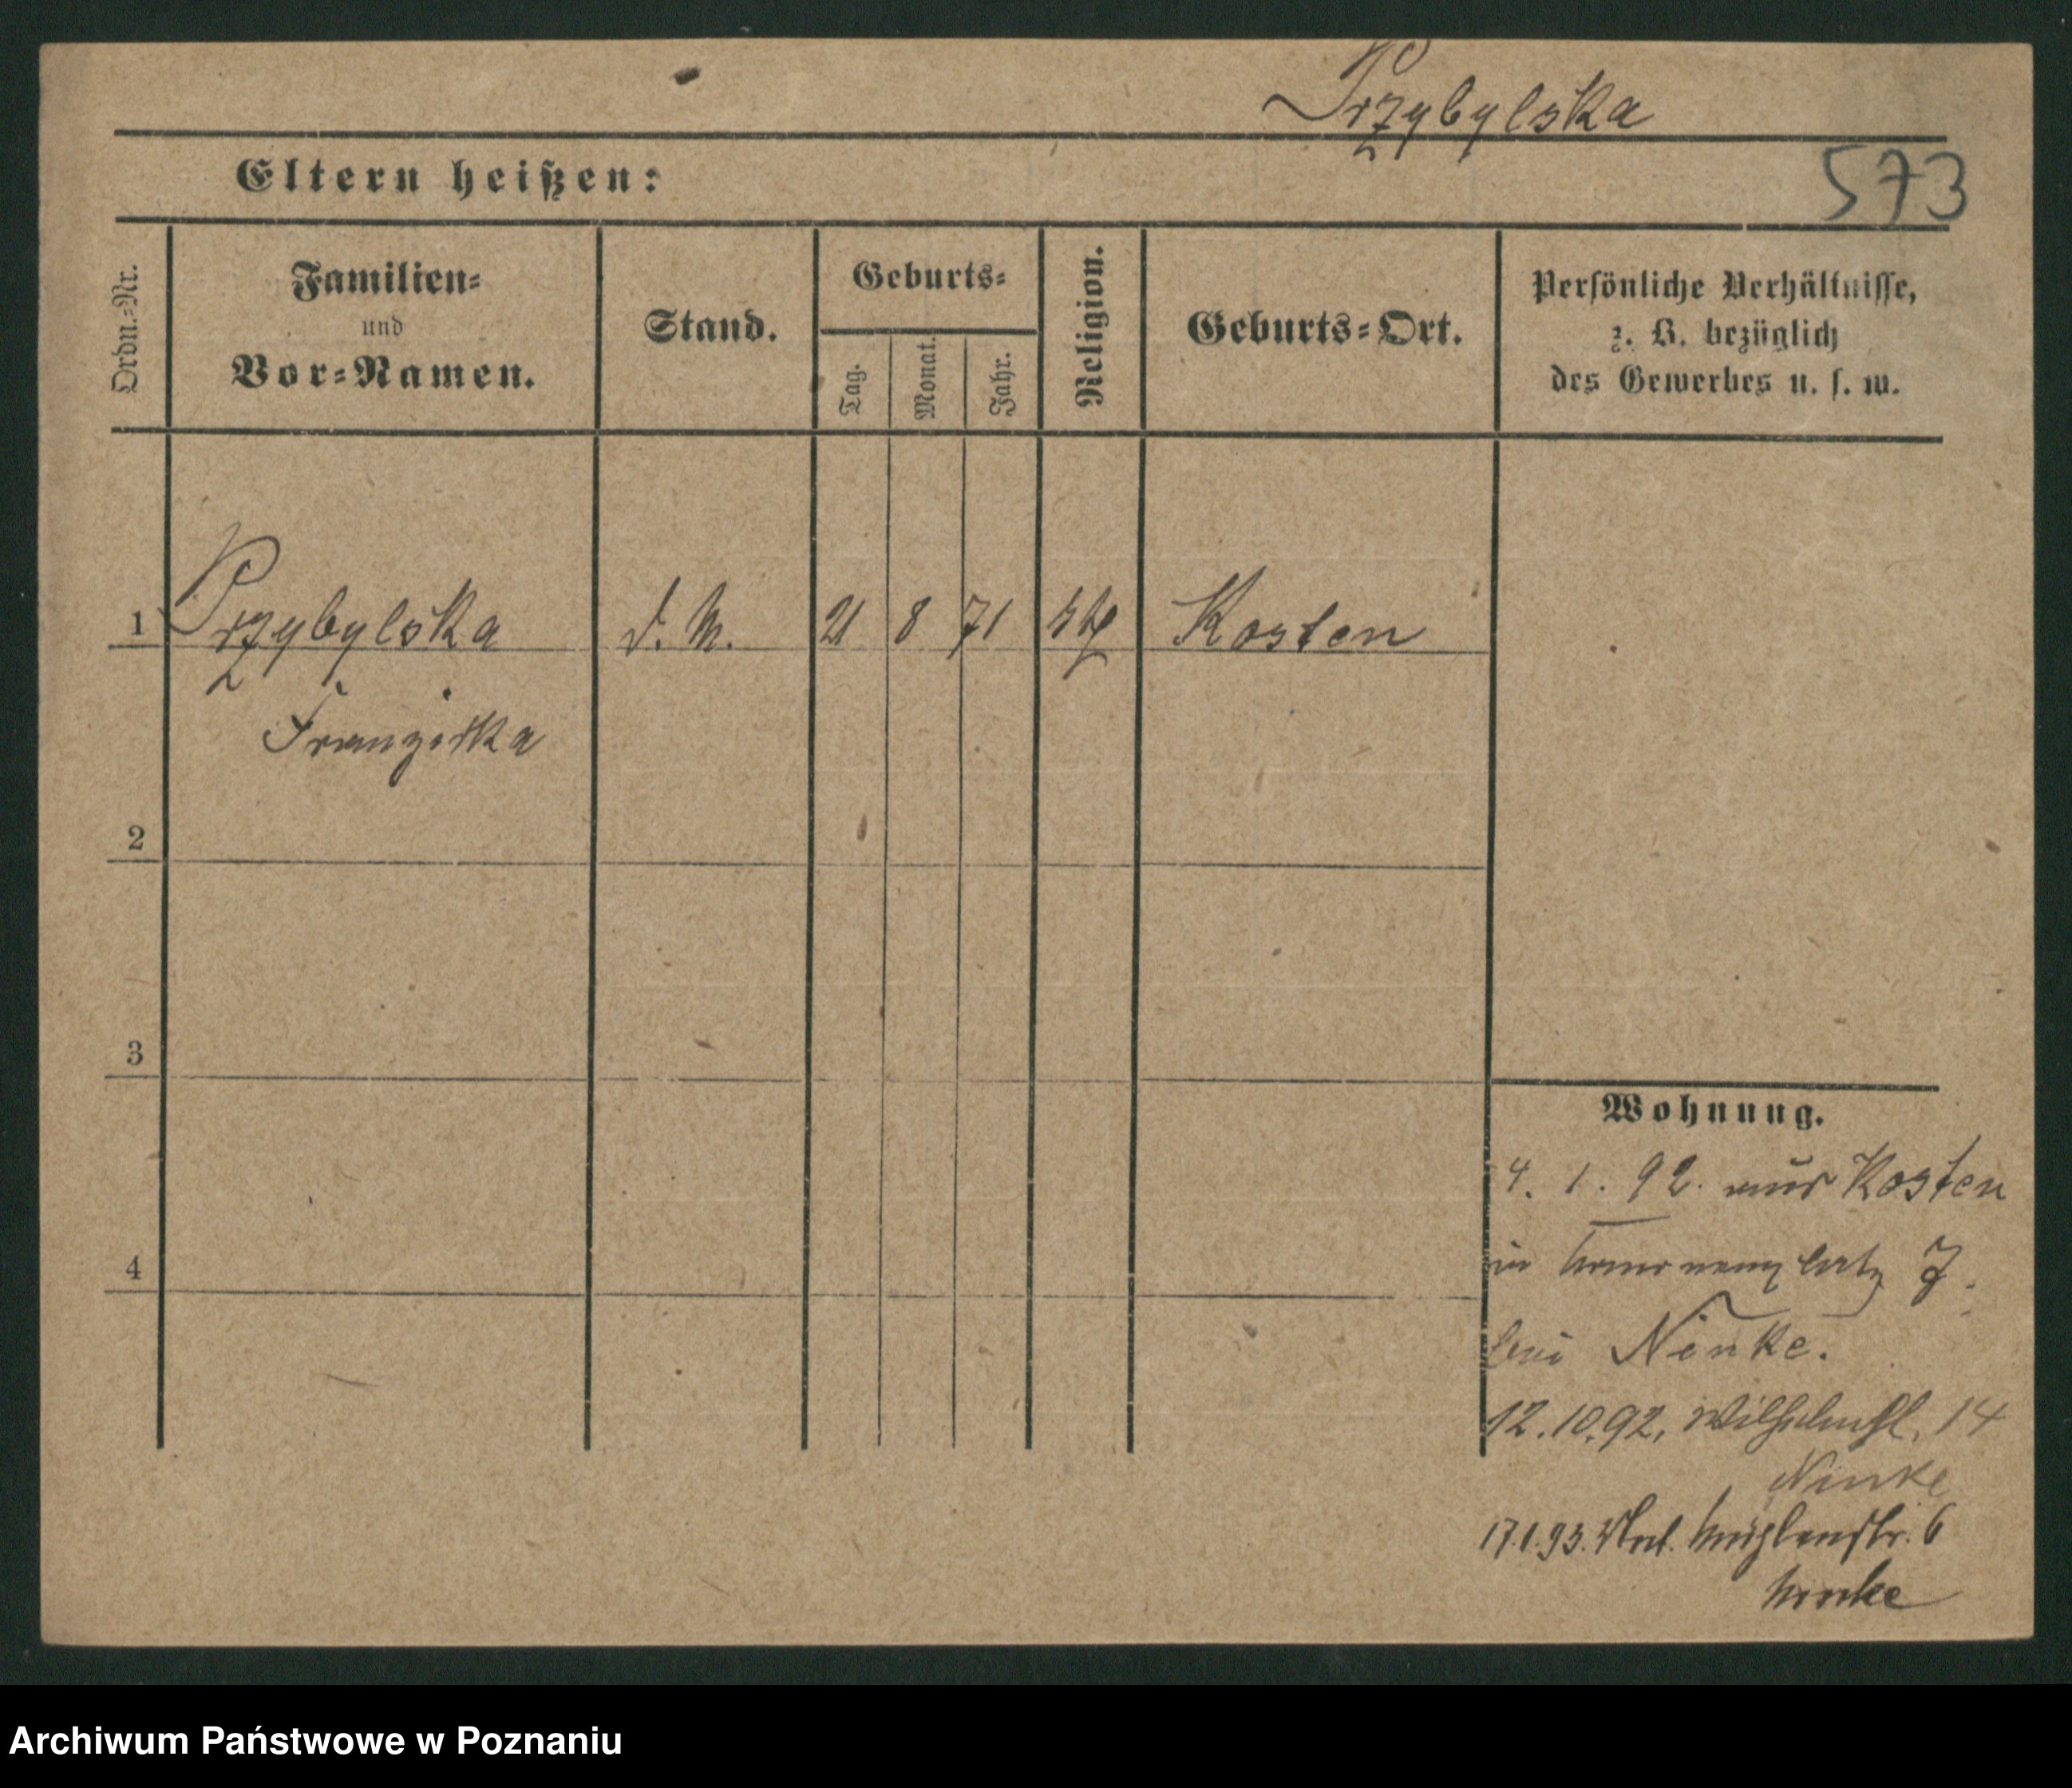 Przybylska
Eltern heißen:
573
Ordn.-Nr.
Familien-
und
Vor-Namen.
Stand.
Geburts-
Tag.
Monat.
Jahr.
Religion.
Geburts-Ort.
Persönliche Verhältnisse,
z. B. bezüglich
des Gewerbes u. s. w.
1 Przybylska d. M. 21 8 71 kth Kosten
Franziska
2
3
4
Wohnung.
4. 1. 92. aus Kosten
in Kanonenplatz 7.
bei Ninke.
12.10.92, Wilhelmspl. 14
Ninke
17.1.93. Mühlenstr. 6
Ninke
Archiwum Państwowe w Poznaniu